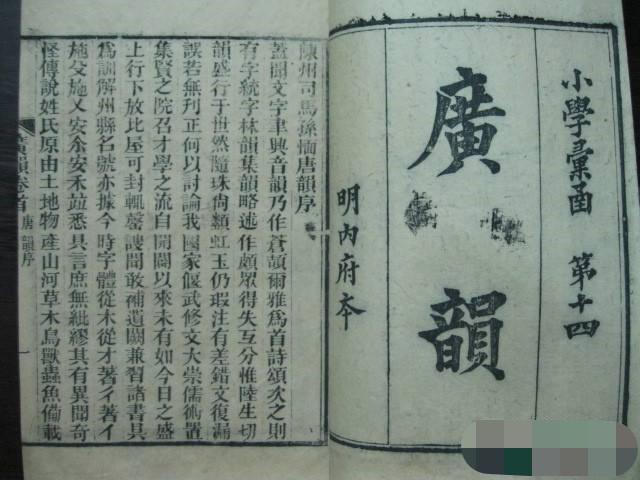 小學彙函 第十四
廣韻
明內府本
陳州司馬孫愐唐韻序
蓋聞文字聿興音韻乃作蒼頡爾雅為首詩頌次之則
有字統字林韻集韻略述作頗眾得失互分惟陸生切
韻盛行于世然隨珠尚纇虹玉仍瑕注有差錯文復漏
誤若無刊正何以討論我國家偃武修文大崇儒術置
集賢之院召才學之流自開闢以來未有如今日之盛
上行下效比屋可封輒罄謏聞敢補遺闕兼習諸書具
為訓解州縣名號亦據今時字體從木從才著彳著亻
施殳施攴安尒安禾並悉具言庶無紕繆其有異聞奇
怪傳說姓氏原由土地物產山河草木鳥獸蟲魚備載
廣韻卷首 唐韻序 一